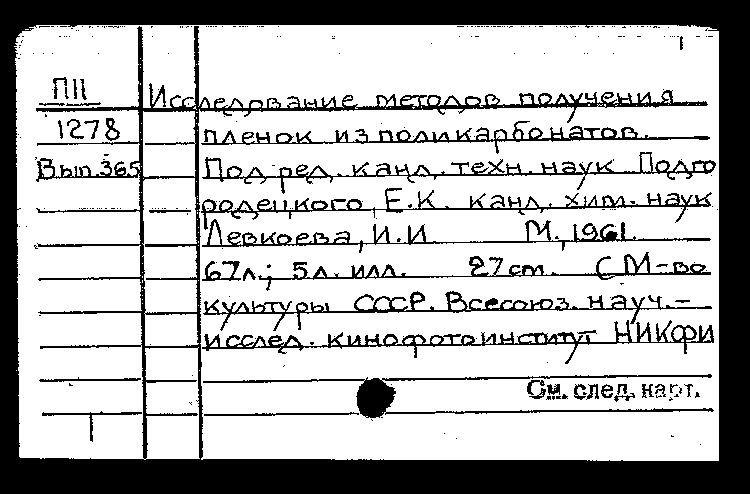 ПII Исследование методов получения
1278 пленок из поликарбонатов.
Вып.365 Под ред. канд. техн. наук Подго
родецкого, Е.К. канд. хим. наук
Левкоева, И.И. М., 1961.
67л.; 5л. илл. 27cm. (М-во
культуры СССР. Всесоюз. науч.-
исслед. кинофотоинститут НИКФИ
См. след. карт.